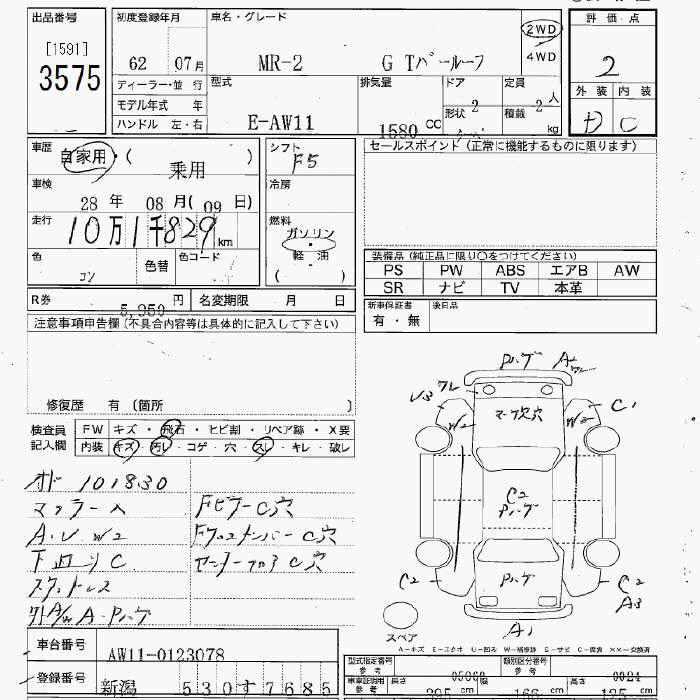 出品番号
[1591]
3575
初度登録年月 車名・グレード
62 07月 MR-2 G Tバールーフ
2WD
4WD
評価・点
2
ディーラー・並行
モデル年式 年
ハンドル 左・右
型式
E-AW11
排気量
1580 CC
ドア 2
形状
定員 2 人
積載 kg
外装 内装
D C
車歴 自家用・( 乗用 )
車検 28年 08月(09日)
走行 10万1千829km
色 コン 色替 色コード
シフト F5
冷房
燃料
ガソリン
軽油
( )
セールスポイント(正常に機能するものに限ります)
装備品(純正品に限り○をつけてください)
PS PW ABS エアB AW
SR ナビ TV 本革
R券 5,950 円 名変期限 月 日
新車保証書 後日品
有・無
注意事項申告欄(不具合内容等は具体的に記入して下さい)
修復歴 有 〔箇所 〕
検査員 記入欄
FW キズ・飛石・ヒビ割・リペア跡・X要
内装 キズ・汚レ・コゲ・穴・スレ・キレ・破レ
オド 101830
マフラー人
A・U W2
下回りC
スタッドレス
Fピラー C穴
Fクロスメンバー C穴
センターフロア C穴
Pハゲ
U3
C1
W2 W2
C2
Pハゲ
Pハゲ
C2 C2
A3
A1
スペア
A-キズ E-エクボ U-凹み W-補修跡 S-サビ C-腐食 XX-交換済
車台番号 AW11-0123078
登録番号 新潟 530す7685
型式指定番号 参考 類別区分番号 参考
車車証明用 参考 長さ cm 幅 cm 高さ cm